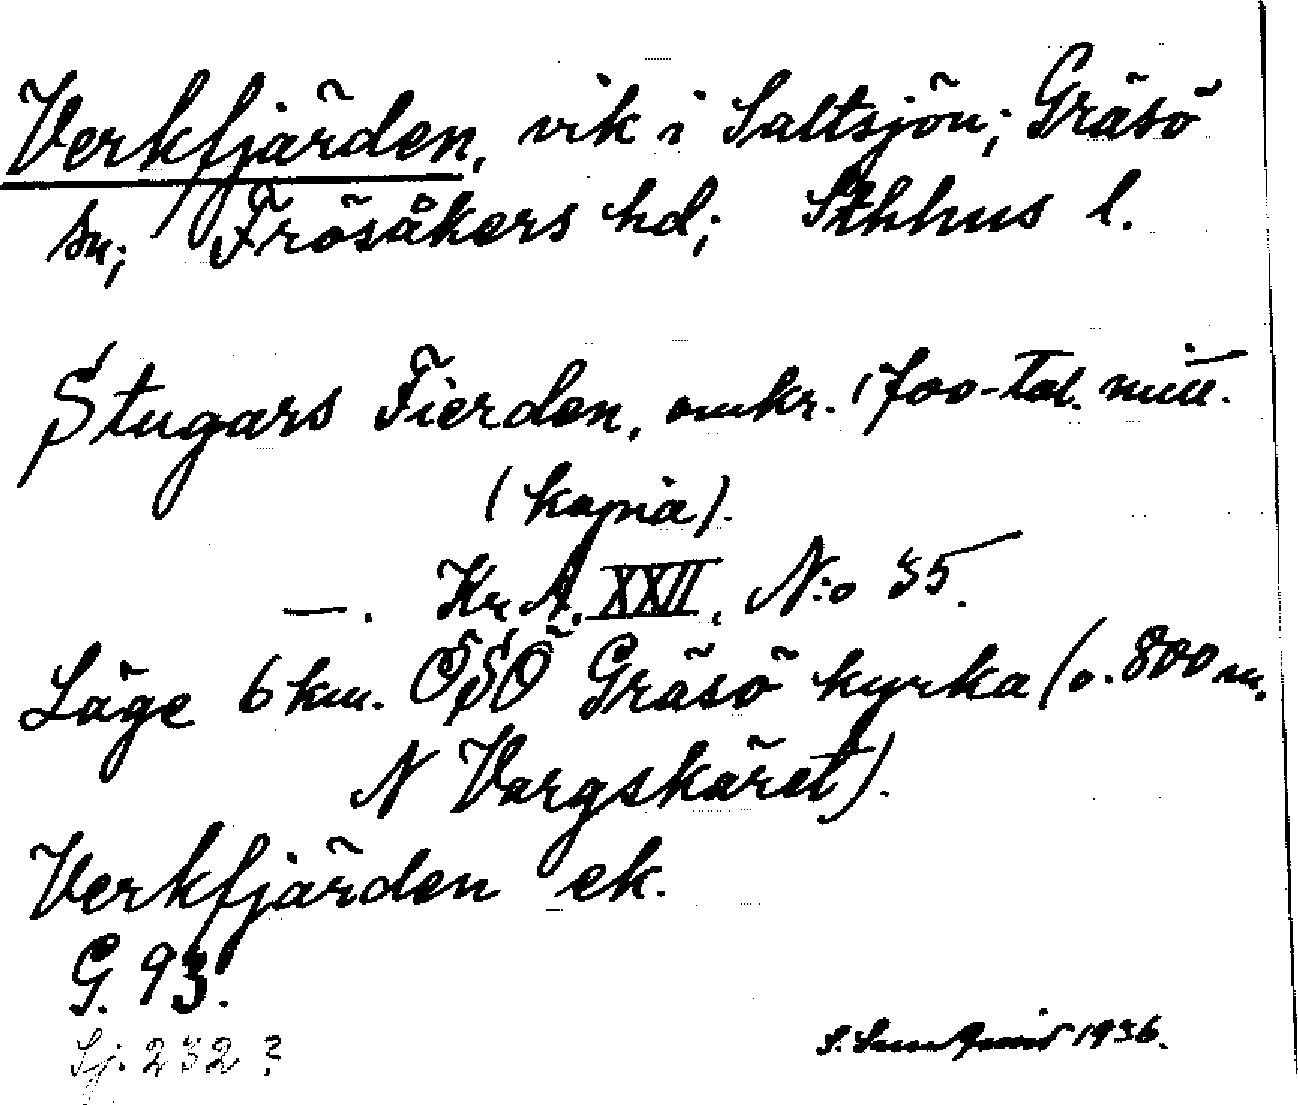 Verkfjärden, vik i Saltsjön; Gräsö
sn; Frösåkers hd; Sthlms l.
Stugars Fierden, omkr. 1700-tal. mitt.
(kopia).
—. Kr. A. XXII, N:o 35.
Läge 6 km. OSO Gräsö kyrka (c. 800 m.
N Vargskäret).
Verkfjärden ek.
G. 93.
Sj. 232?
S. 1936.